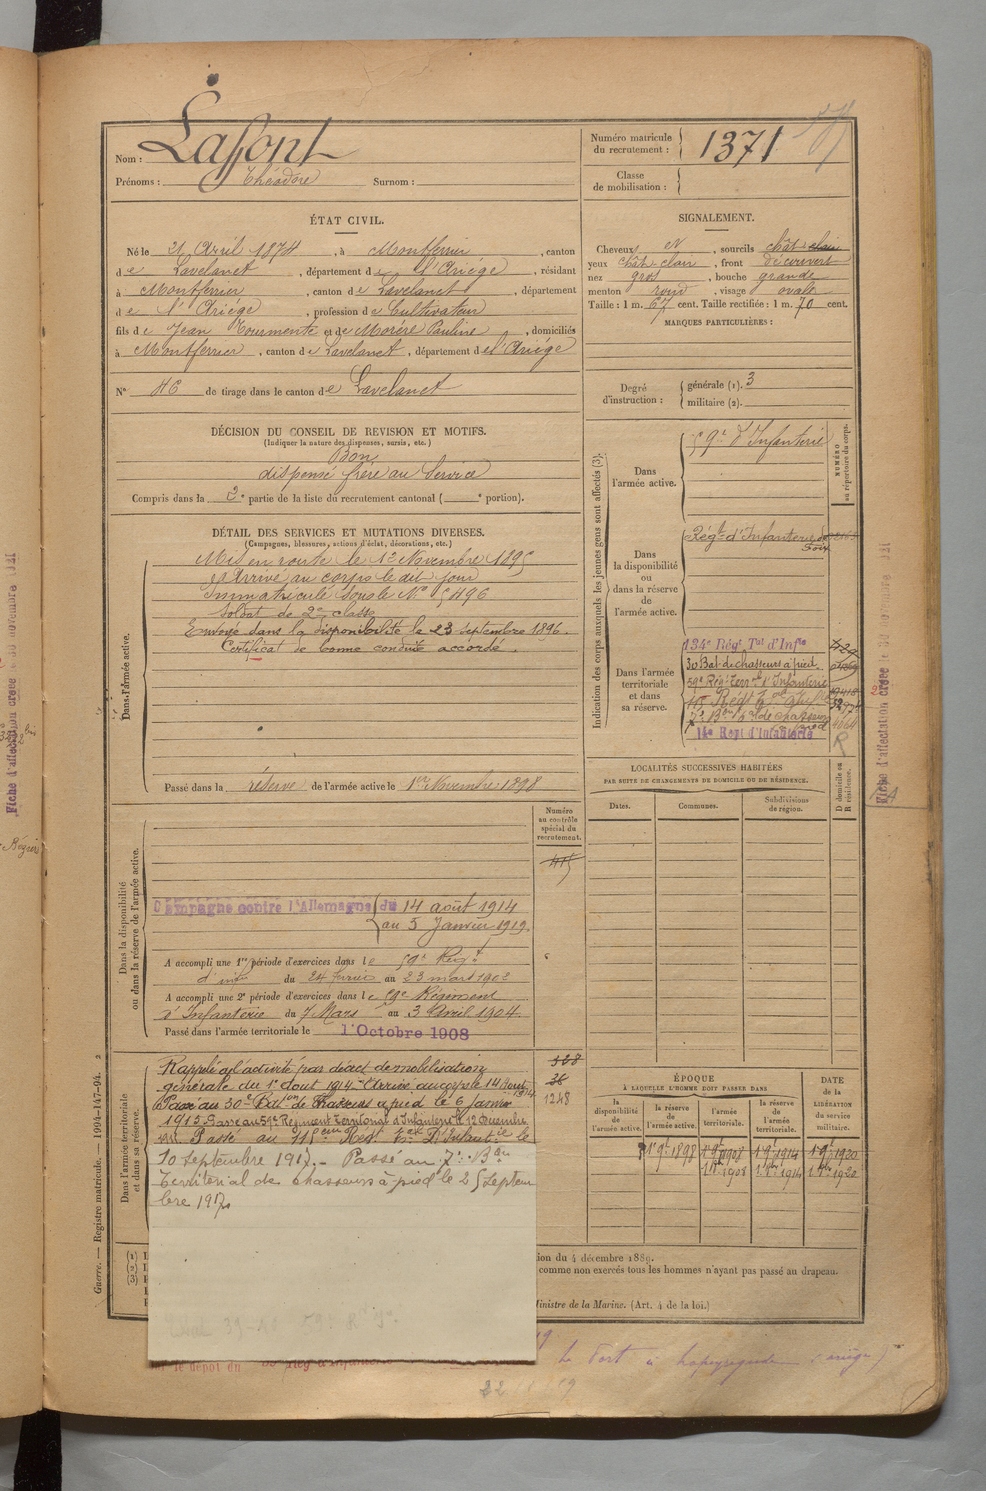 Nom : Laffont
Prénoms : Théodore Surnom :
Numéro matricule du recrutement : 1371
Classe de mobilisation :
ÉTAT CIVIL.
Né le 21 Avril 1874, à Montferrier, canton
de Lavelanet, département de l'Ariége, résidant
à Montferrier, canton de Lavelanet, département
de l'Ariége, profession de Cultivateur
fils de Jean Tourmente et de Morère Pauline, domiciliés
à Montferrier, canton de Lavelanet, département de l'Ariége
N° 46 de tirage dans le canton de Lavelanet
SIGNALEMENT.
Cheveux et, sourcils chât clair
yeux chât clair, front découvert
nez gros, bouche grande
menton rond, visage ovale
Taille : 1 m. 67 cent. Taille rectifiée : 1 m. 70 cent.
MARQUES PARTICULIÈRES :
Degré d'instruction : générale (1). 3
militaire (2).
DÉCISION DU CONSEIL DE REVISION ET MOTIFS.
(Indiquer la nature des dispenses, sursis, etc.)
Bon
dispensé frère au Service
Compris dans la 2e partie de la liste du recrutement cantonal ( e portion).
DÉTAIL DES SERVICES ET MUTATIONS DIVERSES.
(Campagnes, blessures, actions d'éclat, décorations, etc.)
Dans l'armée active.
Mis en route le 12 Novembre 1895
Arrivé au corps le dit jour
Immatriculé sous le N° 5496
Soldat de 2e classe
Envoyé dans la disponibilité le 23 septembre 1896.
Certificat de bonne conduite accordé.
Passé dans la réserve de l'armée active le 1er Novembre 1898
Indication des corps auxquels les jeunes gens sont affectés (3).
NUMÉRO au répertoire du corps.
Dans l'armée active.
59e d'Infanterie
Dans la disponibilité ou dans la réserve de l'armée active.
Régt d'Infanterie de Foix
Dans l'armée territoriale et dans sa réserve.
134e Régt Tal d'Infie
30 Bat de chasseurs à pied
59e Rég Terr d'Infanterie
7e Bon tal de chasseurs à pied
14e Regt d'Infanterie
LOCALITÉS SUCCESSIVES HABITÉES
PAR SUITE DE CHANGEMENTS DE DOMICILE OU DE RÉSIDENCE.
Dates. Communes. Subdivisions de région.
D domicile ou R résidence.
Dans la disponibilité ou dans la réserve de l'armée active.
Numéro au contrôle spécial du recrutement.
415
Campagne contre l'Allemagne du 14 août 1914
au 5 Janvier 1919.
A accompli une 1re période d'exercices dans le 59e Regt
d'infie du 24 fevrier au 23 mars 1902
A accompli une 2e période d'exercices dans le 59e Régiment
d'Infanterie du 7 Mars au 3 Avril 1904.
Passé dans l'armée territoriale le 1 Octobre 1908
Dans l'armée territoriale et dans sa réserve.
Rappelé à l'activité par décret de mobilisation
générale du 1er Aout 1914. Arrivé au corps le 14 Aout 1914
Passé au 30e Baton de Chasseurs à pied le 6 Janvier
1915 Passé au 59e Régiment Territorial d'Infanterie le 12 Decembre
Passé au 115eme Regt tal d'Infantie le
10 Septembre 1917. Passé au 7e Bon
Territorial de chasseurs à pied le 25 Septem
bre 1917.
328
36
1248
ÉPOQUE
À LAQUELLE L'HOMME DOIT PASSER DANS
la disponibilité de l'armée active. la réserve de l'armée active. l'armée territoriale. la réserve de l'armée territoriale.
DATE de la LIBÉRATION du service militaire.
1 9e 1898 1 9e 1908 1 9e 1914 1 9e 1920
1 8bre 1908 1 8bre 1914 1 8bre 1920
(1)
(2)
(3)
ion du 4 décembre 1889.
comme non exercés tous les hommes n'ayant pas passé au drapeau.
Ministre de la Marine. (Art. 4 de la loi.)
le dépôt du
Guerre. — Registre matricule. — 1994-147-94.
Fiche d'affectation créée le 30 novembre 1921
Fiche d'affectation créée le 30 novembre